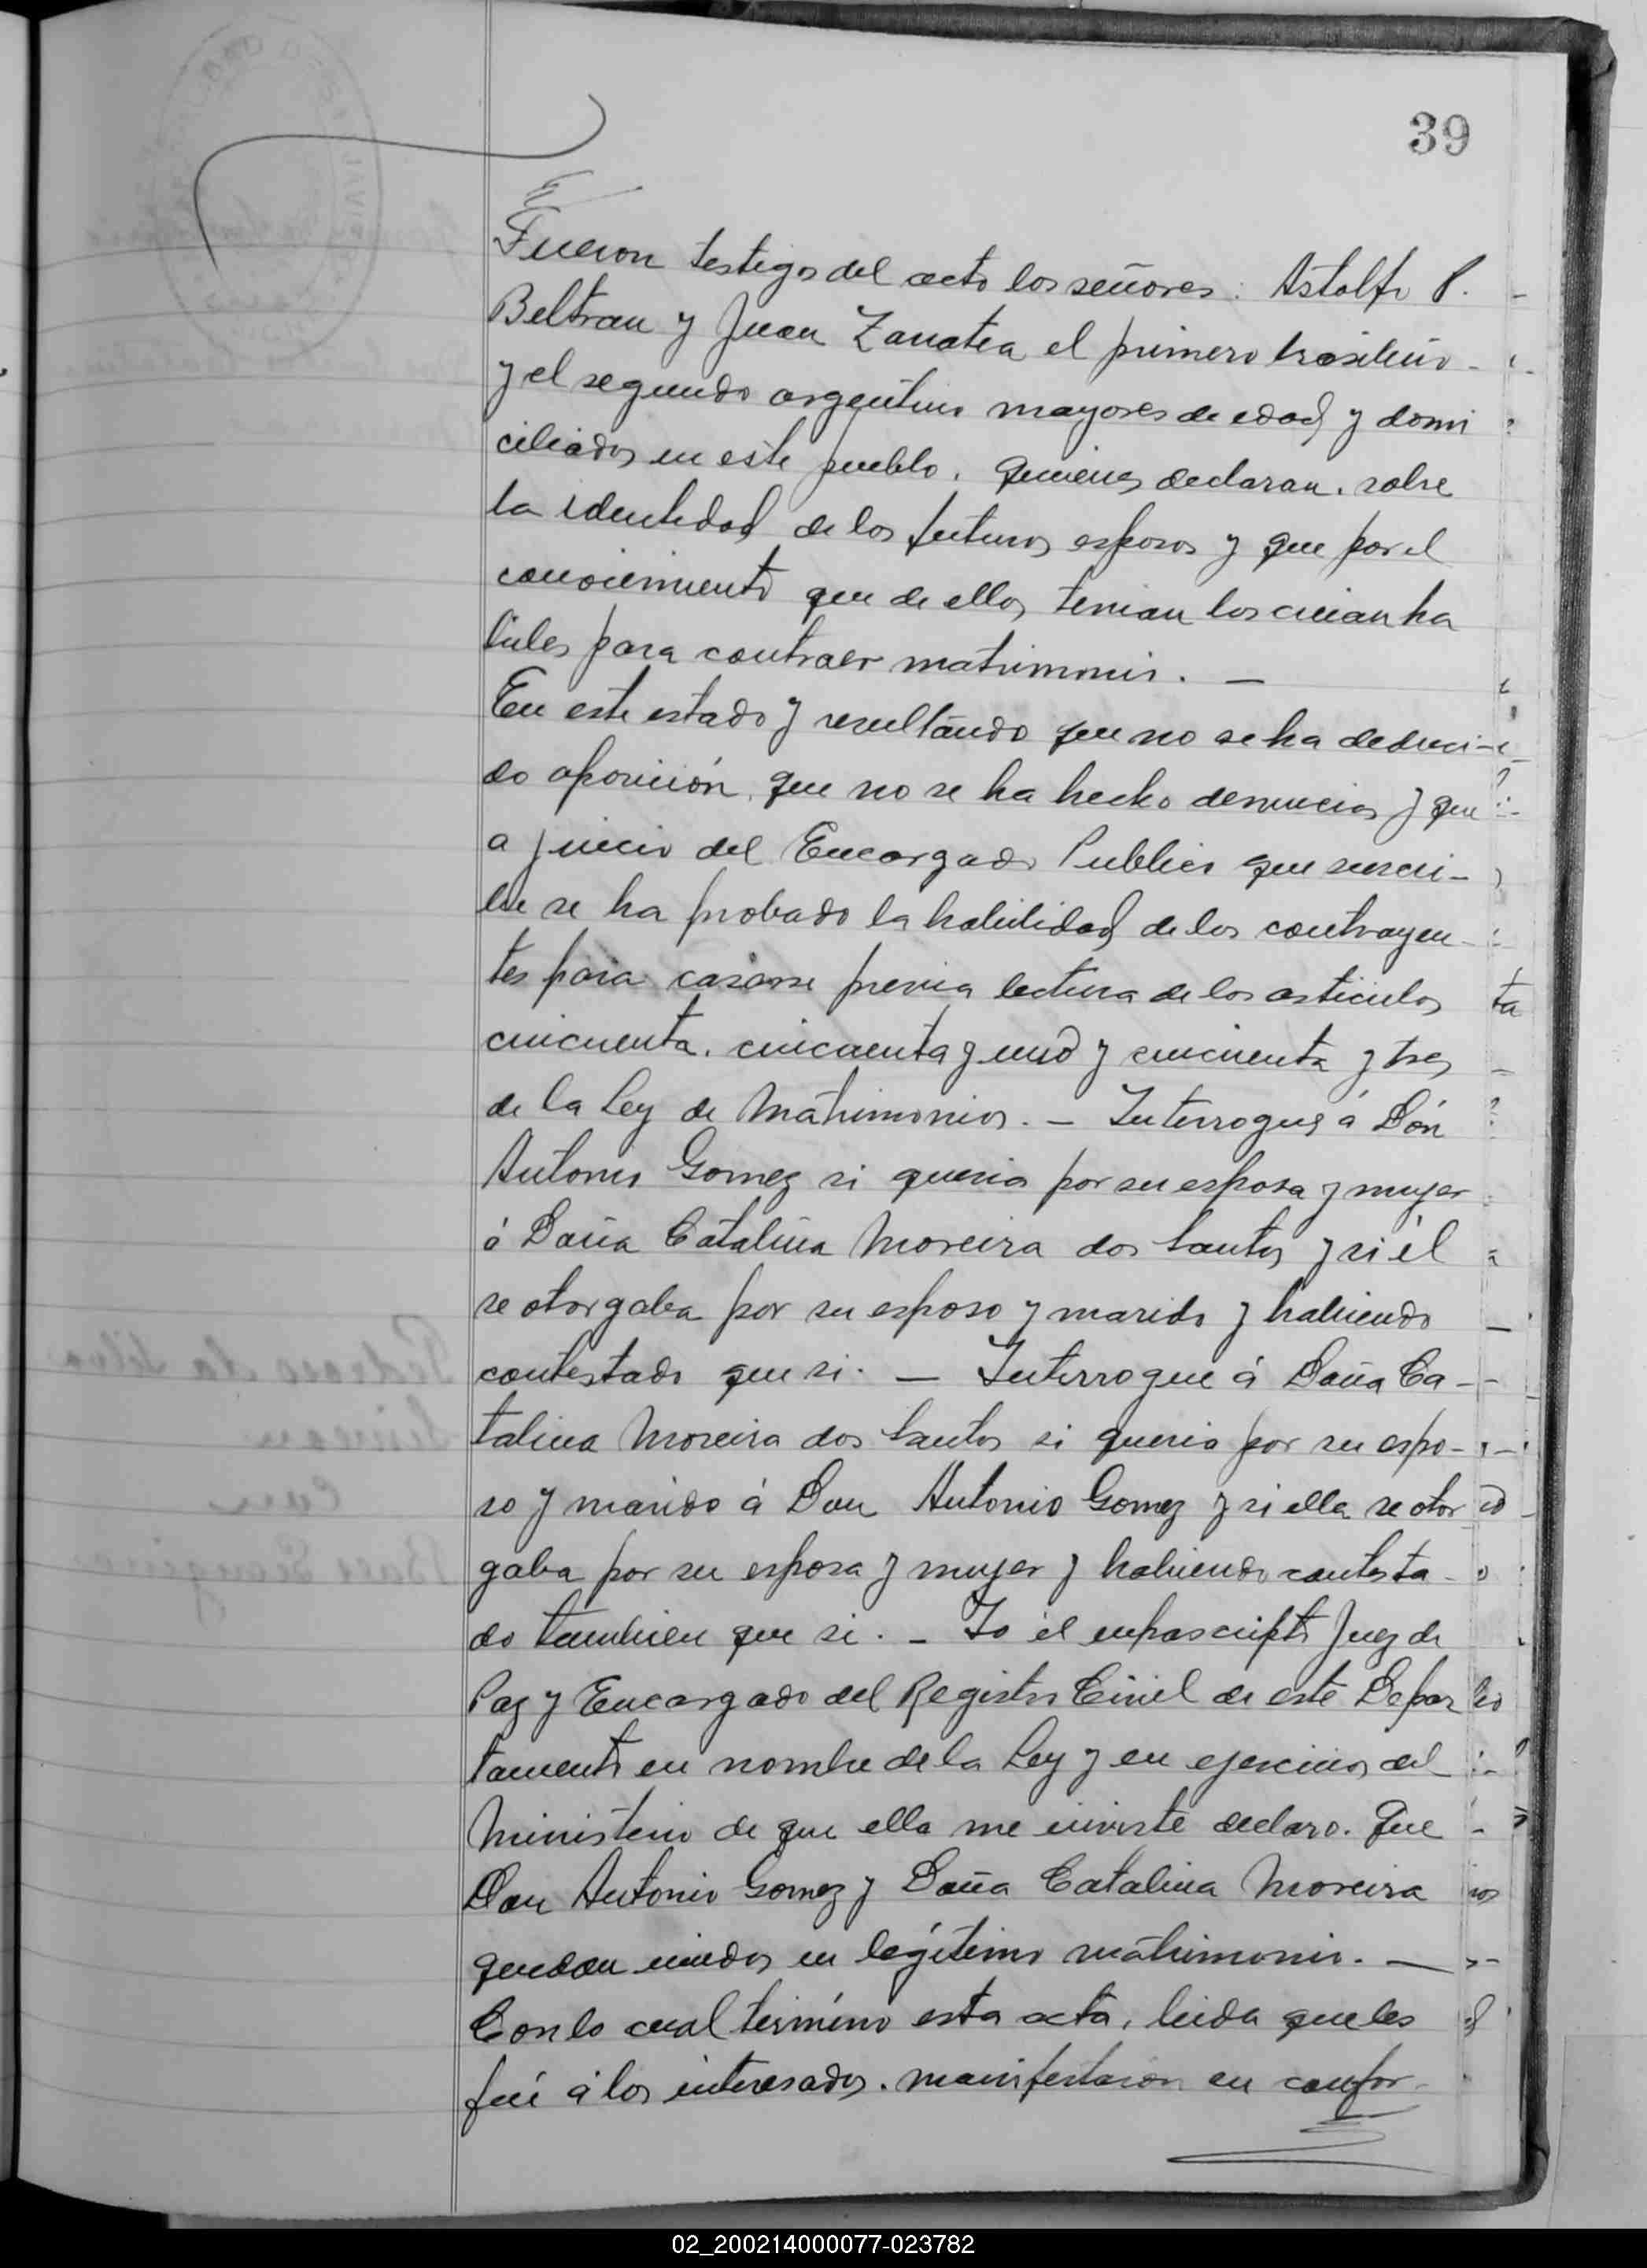 39
Fueron testigos del acto los señores: Astolfo P.
Beltran y Juan Zanatea el primero brasileño
y el segundo argentino mayores de edad y domi
ciliados en este pueblo. quienes declaran. sobre
la identidad de los futuros esposos y que por el
conocimiento que de ellos tenian los creian ha
biles para contraer matrimonio. —
En este estado y resultando que no se ha deduci-
do oposición, que no se ha hecho denuncias y que
a juicio del Encargado Publico que suscri-
be se ha probado la habilidad de los contrayen-
tes para casarse previa lectura de los articulos
cincuenta. cincuenta y uno y cincuenta y tres
de la Ley de Matrimonios. — Interrogué á Dón
Antonio Gomez si queria por su esposa y mujer
á Doña Catalina Moreira dos Santos y si él
se otorgaba por su esposo y marido y habiendo
contestado que si. — Interrogue á Doña Ca-
talina Moreira dos Santos si queria por su espo-
so y marido á Don Antonio Gomez y si ella se otor
gaba por su esposa y mujer y habiendo contesta-
do tambien que si. — Yo el infrascripto Juez de
Paz y Encargado del Registro Civil de este Depar
tamento en nombre de la Ley y en ejercicios del
Ministerio de que ella me inviste declaro. Que
Don Antonio Gomez y Doña Catalina Moreira
quedan unidos en legítimo matrimonio. —
Con lo cual término esta acta, leida que les
fué á los interesados. manifestaron su confor-
02_200214000077-023782